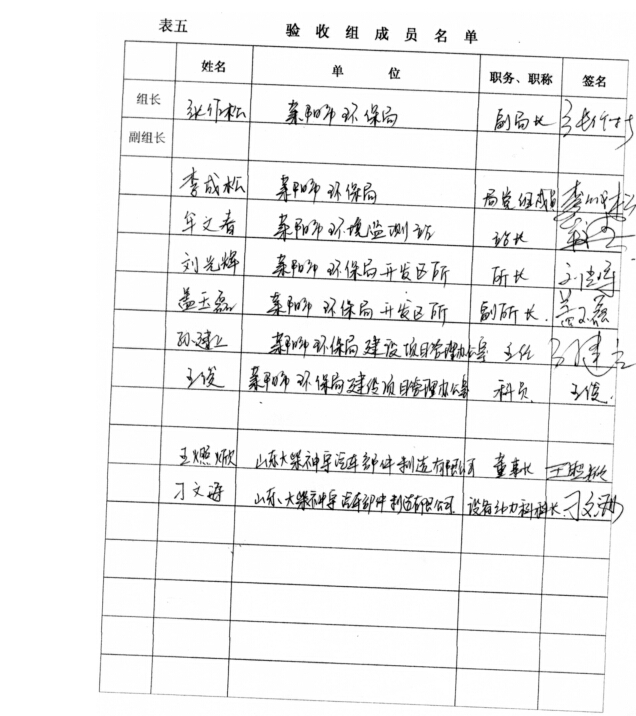 表五 验收组成员名单
姓名 单位 职务、职称 签名
组长 张作松 莱阳市环保局 副局长
副组长
李成松 莱阳市环保局 局党组成员 李成松
牟文春 莱阳市环境监测站 站长
刘光辉 莱阳市环保局开发区所 所长
盖玉磊 莱阳市环保局开发区所 副所长 盖玉磊
孙建 莱阳市环保局建设项目管理办公室 主任
王俊 莱阳市环保局建设项目管理办公室 科员 王俊
王照欣 山东大梁神宇汽车部件制造有限公司 董事长
刁文涛 山东大梁神宇汽车部件制造有限公司 设备动力科科长 刁文涛